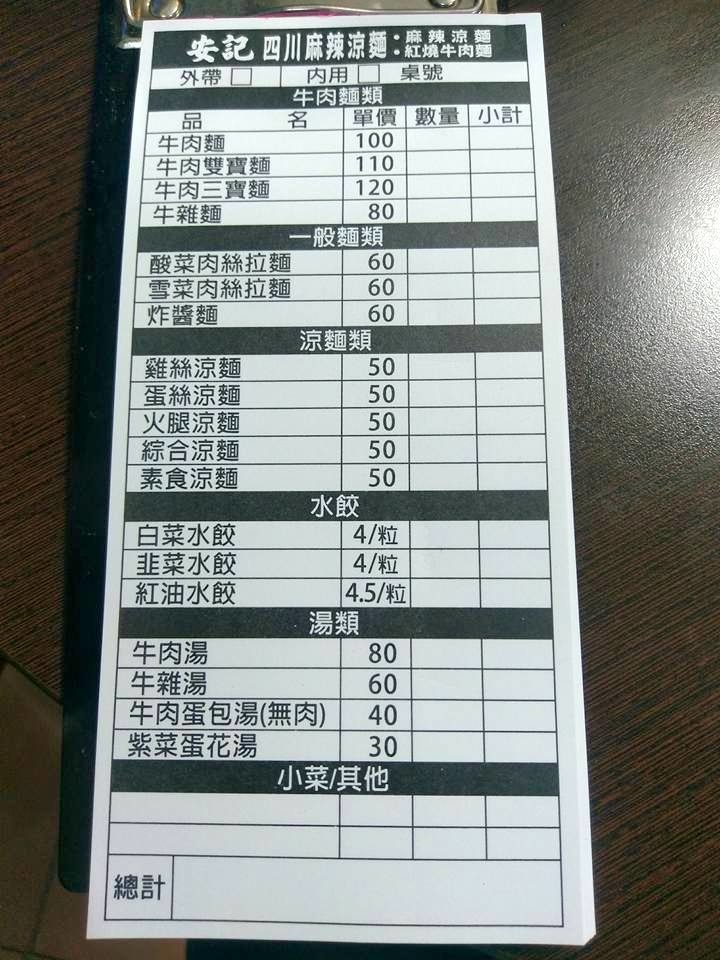 安記 四川麻辣涼麵：麻辣涼麵 紅燒牛肉麵
外帶 □ 內用 □ 桌號
牛肉麵類
品 名 單價 數量 小計
牛肉麵 100
牛肉雙寶麵 110
牛肉三寶麵 120
牛雜麵 80
一般麵類
酸菜肉絲拉麵 60
雪菜肉絲拉麵 60
炸醬麵 60
涼麵類
雞絲涼麵 50
蛋絲涼麵 50
火腿涼麵 50
綜合涼麵 50
素食涼麵 50
水餃
白菜水餃 4/粒
韭菜水餃 4/粒
紅油水餃 4.5/粒
湯類
牛肉湯 80
牛雜湯 60
牛肉蛋包湯(無肉) 40
紫菜蛋花湯 30
小菜/其他
總計